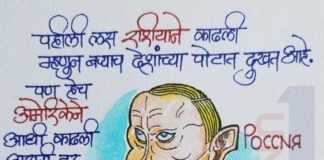 पहीली लस रशियाने काढली
म्हणुन बर्‍याच देशांच्या पोटात दुखत आहे.
पण हेच
अमेरिकेने
आधी काढली
РОССИЯ